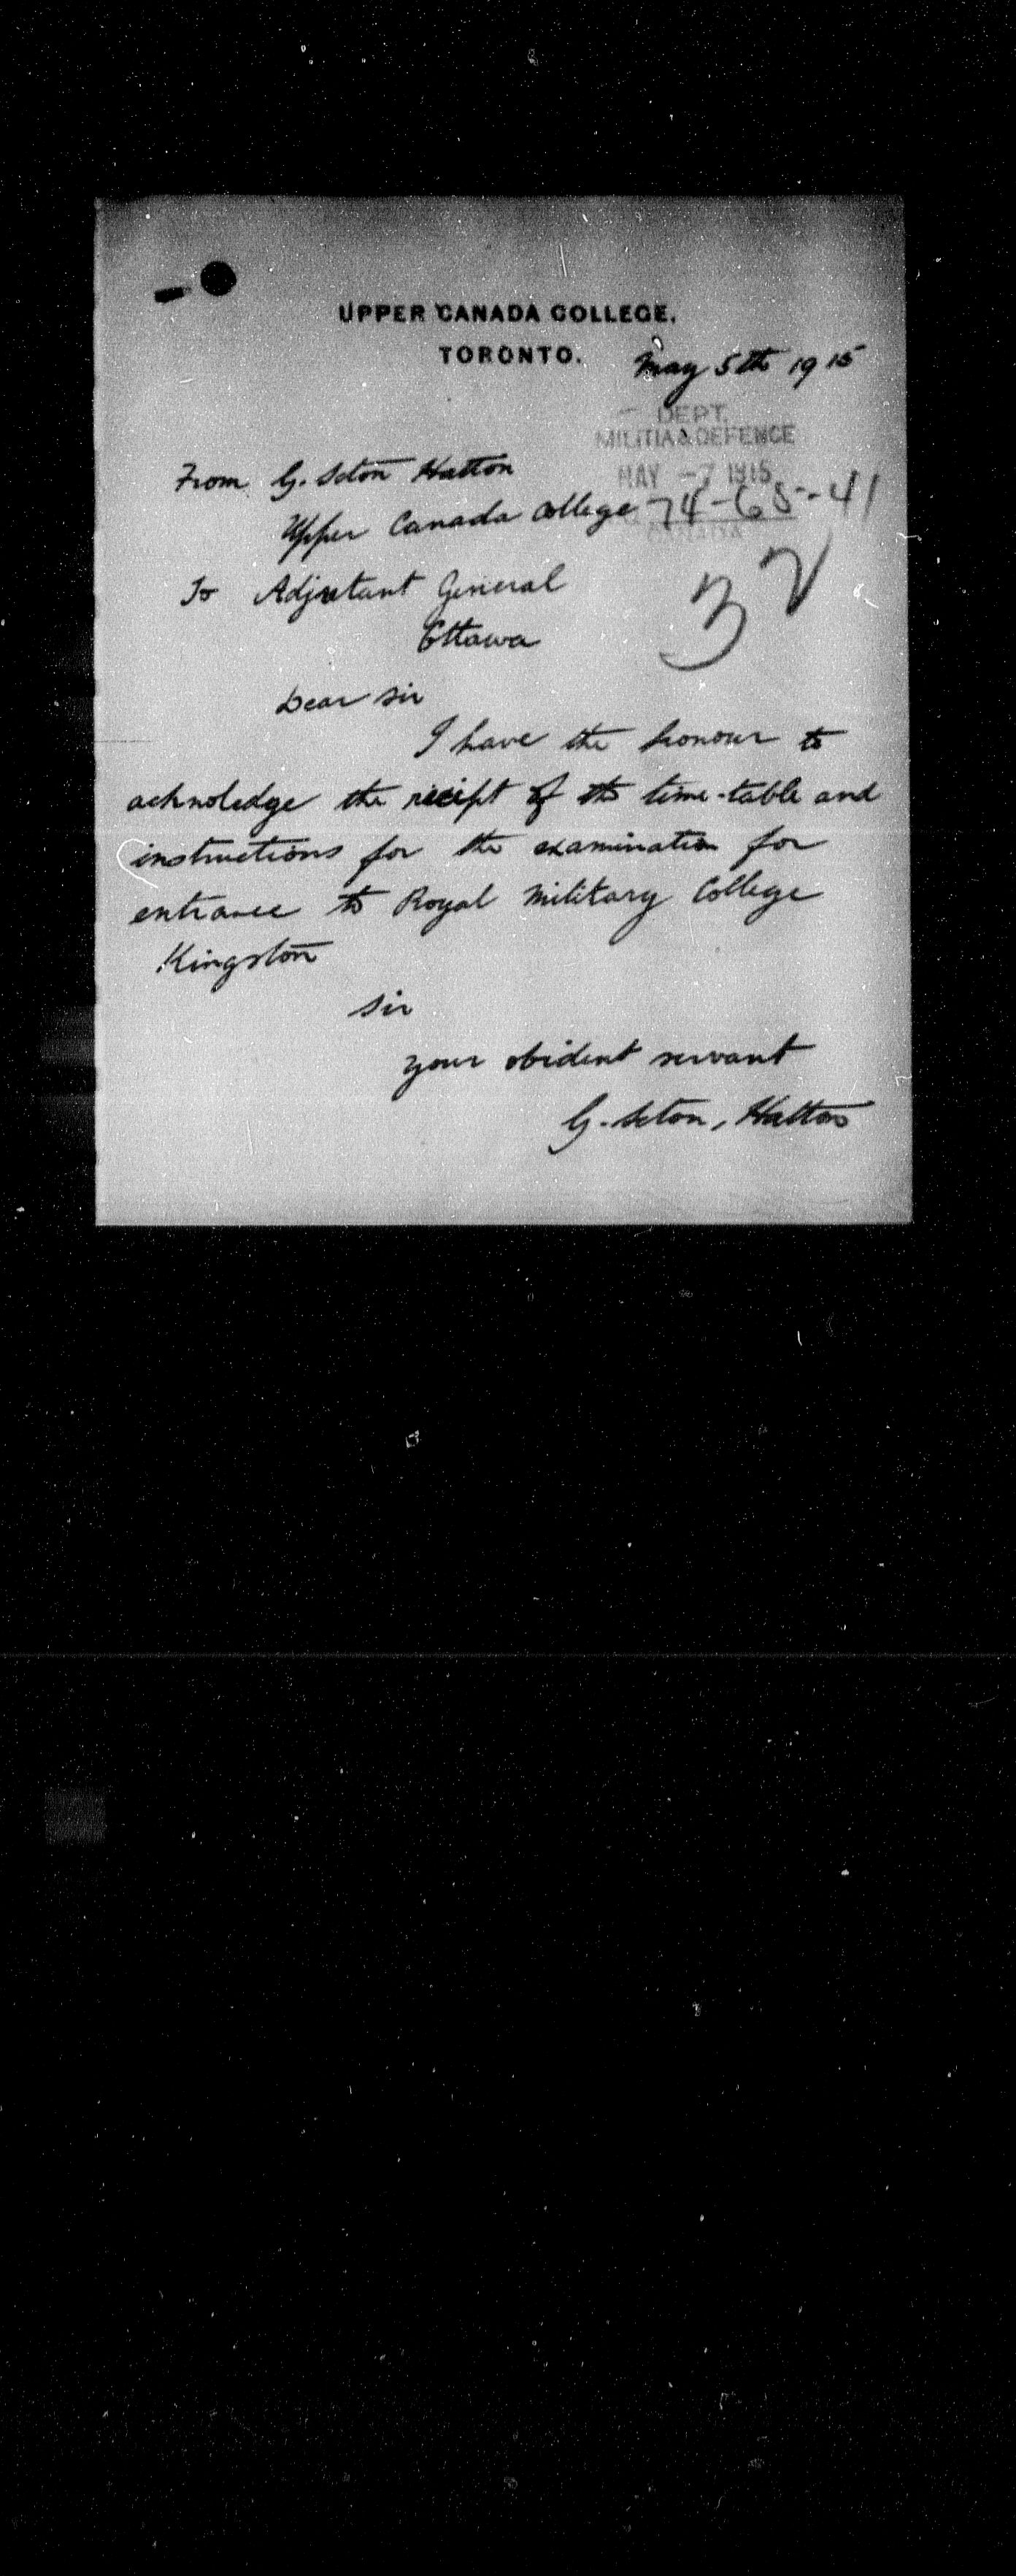 UPPER CANADA COLLEGE.
TORONTO.
May 5th 1915
DEPT.
MILITIA & DEFENCE
MAY -7 1915
From G. Seton Hatton
Upper Canada College
74-65-41
CANADA
32
To Adjutant General
Ottawa
Dear Sir
I have the honour to
acknoledge the reciept of the time-table and
instructions for the examination for
entrance to Royal Military College
Kingston
Sir
your obident servant
G. Seton, Hatton